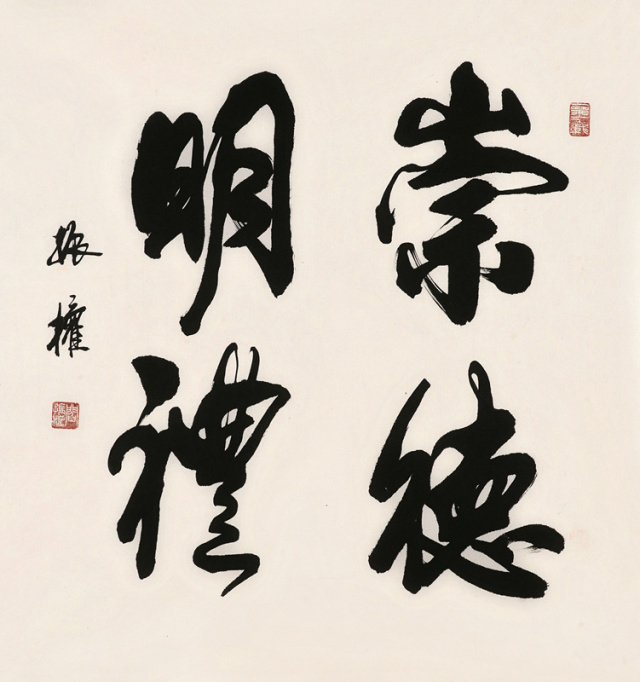 崇德
明禮
振權